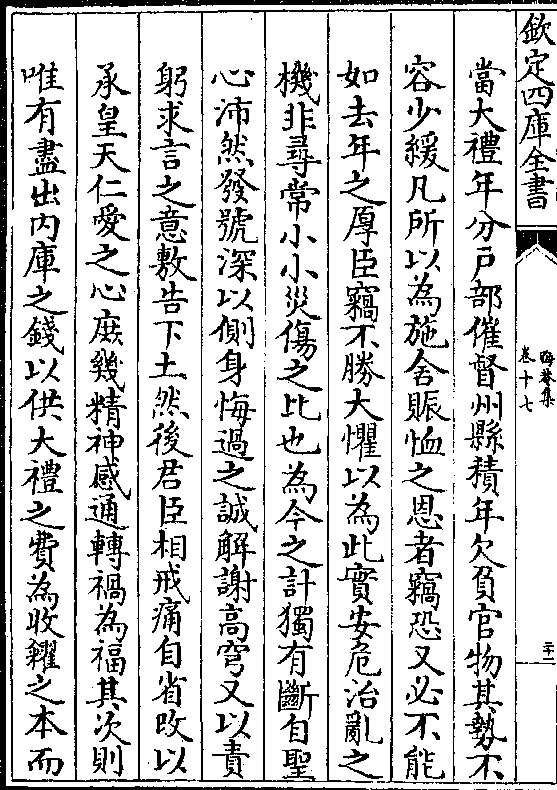 欽定四庫全書
晦菴集
卷十七
二十一
當大禮年分戸部催督州縣積年欠負官物其勢不
容少緩凡所以為施舍賑恤之恩者竊恐又必不能
如去年之厚臣竊不勝大懼以為此實安危治亂之
機非尋常小小災傷之比也為今之計獨有斷自聖
心沛然發號深以側身悔過之誠解謝高穹又以責
躬求言之意敷告下土然後君臣相戒痛自省改以
承皇天仁愛之心庶幾精神感通轉禍為福其次則
唯有盡出内庫之錢以供大禮之費為收糴之本而